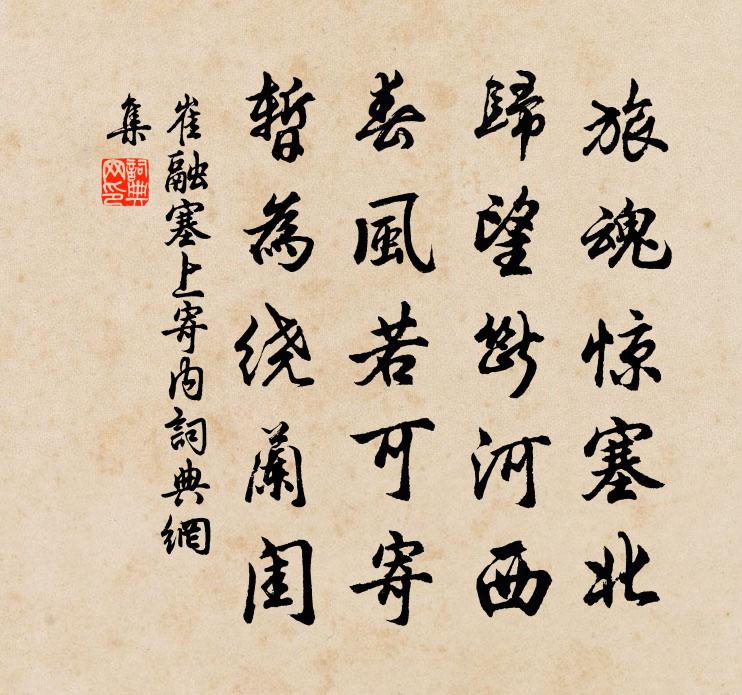 旅魂惊塞北
歸望斷河西
春風若可寄
暫為绕蘭闺
崔融塞上寄内詞典網
集
詞典
网印